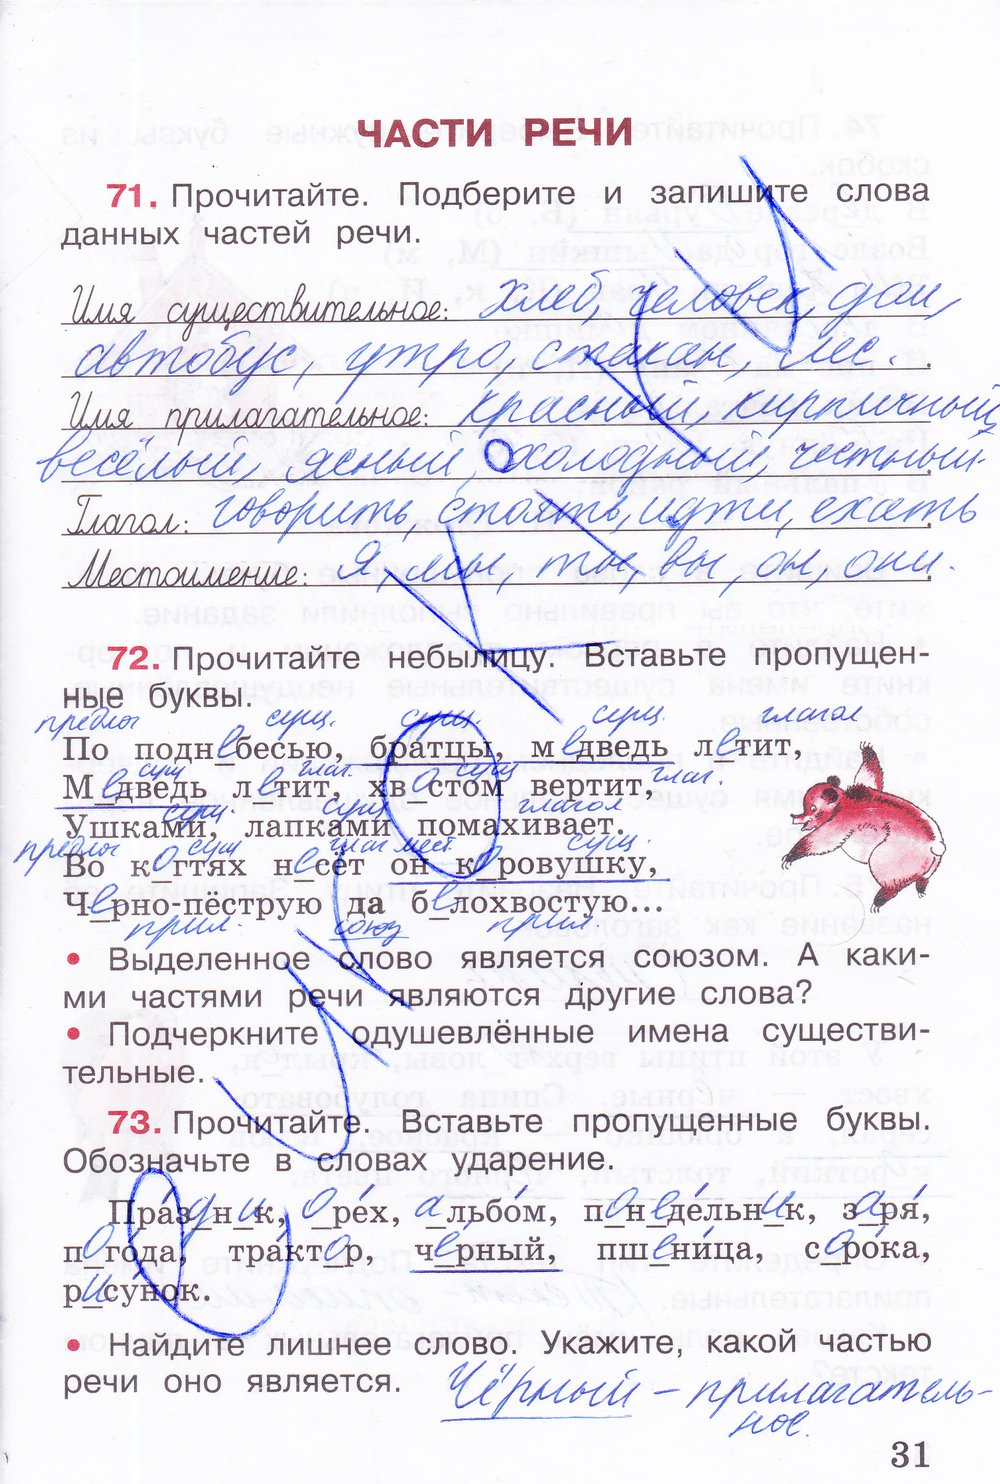 ЧАСТИ РЕЧИ
71. Прочитайте. Подберите и запишите слова
данных частей речи.
Имя существительное: хлеб, человек, дом,
автобус, утро, стакан, лес.
Имя прилагательное: красный, кирпичный,
весёлый, ясный, холодный, честный.
Глагол: говорить, стоять, идти, ехать
Местоимение: Я, мы, ты, вы, он, они.
72. Прочитайте небылицу. Вставьте пропущен-
ные буквы.
предлог сущ. сущ. сущ. глагол
По поднебесью, братцы, медведь летит,
сущ глаг. сущ глаг.
Медведь летит, хвостом вертит,
сущ. сущ глагол
Ушками, лапками помахивает.
предлог сущ глаг мест. сущ.
Во когтях несёт он коровушку,
Чёрно-пёструю да белохвостую...
прил. союз прил.
• Выделенное слово является союзом. А каки-
ми частями речи являются другие слова?
• Подчеркните одушевлённые имена существи-
тельные.
73. Прочитайте. Вставьте пропущенные буквы.
Обозначьте в словах ударение.
Пра́здник, оре́х, альбо́м, понеде́льник, заря́,
пого́да, тра́ктор, чёрный, пшени́ца, соро́ка,
рису́нок.
• Найдите лишнее слово. Укажите, какой частью
речи оно является. Чёрный – прилагатель-
ное.
31